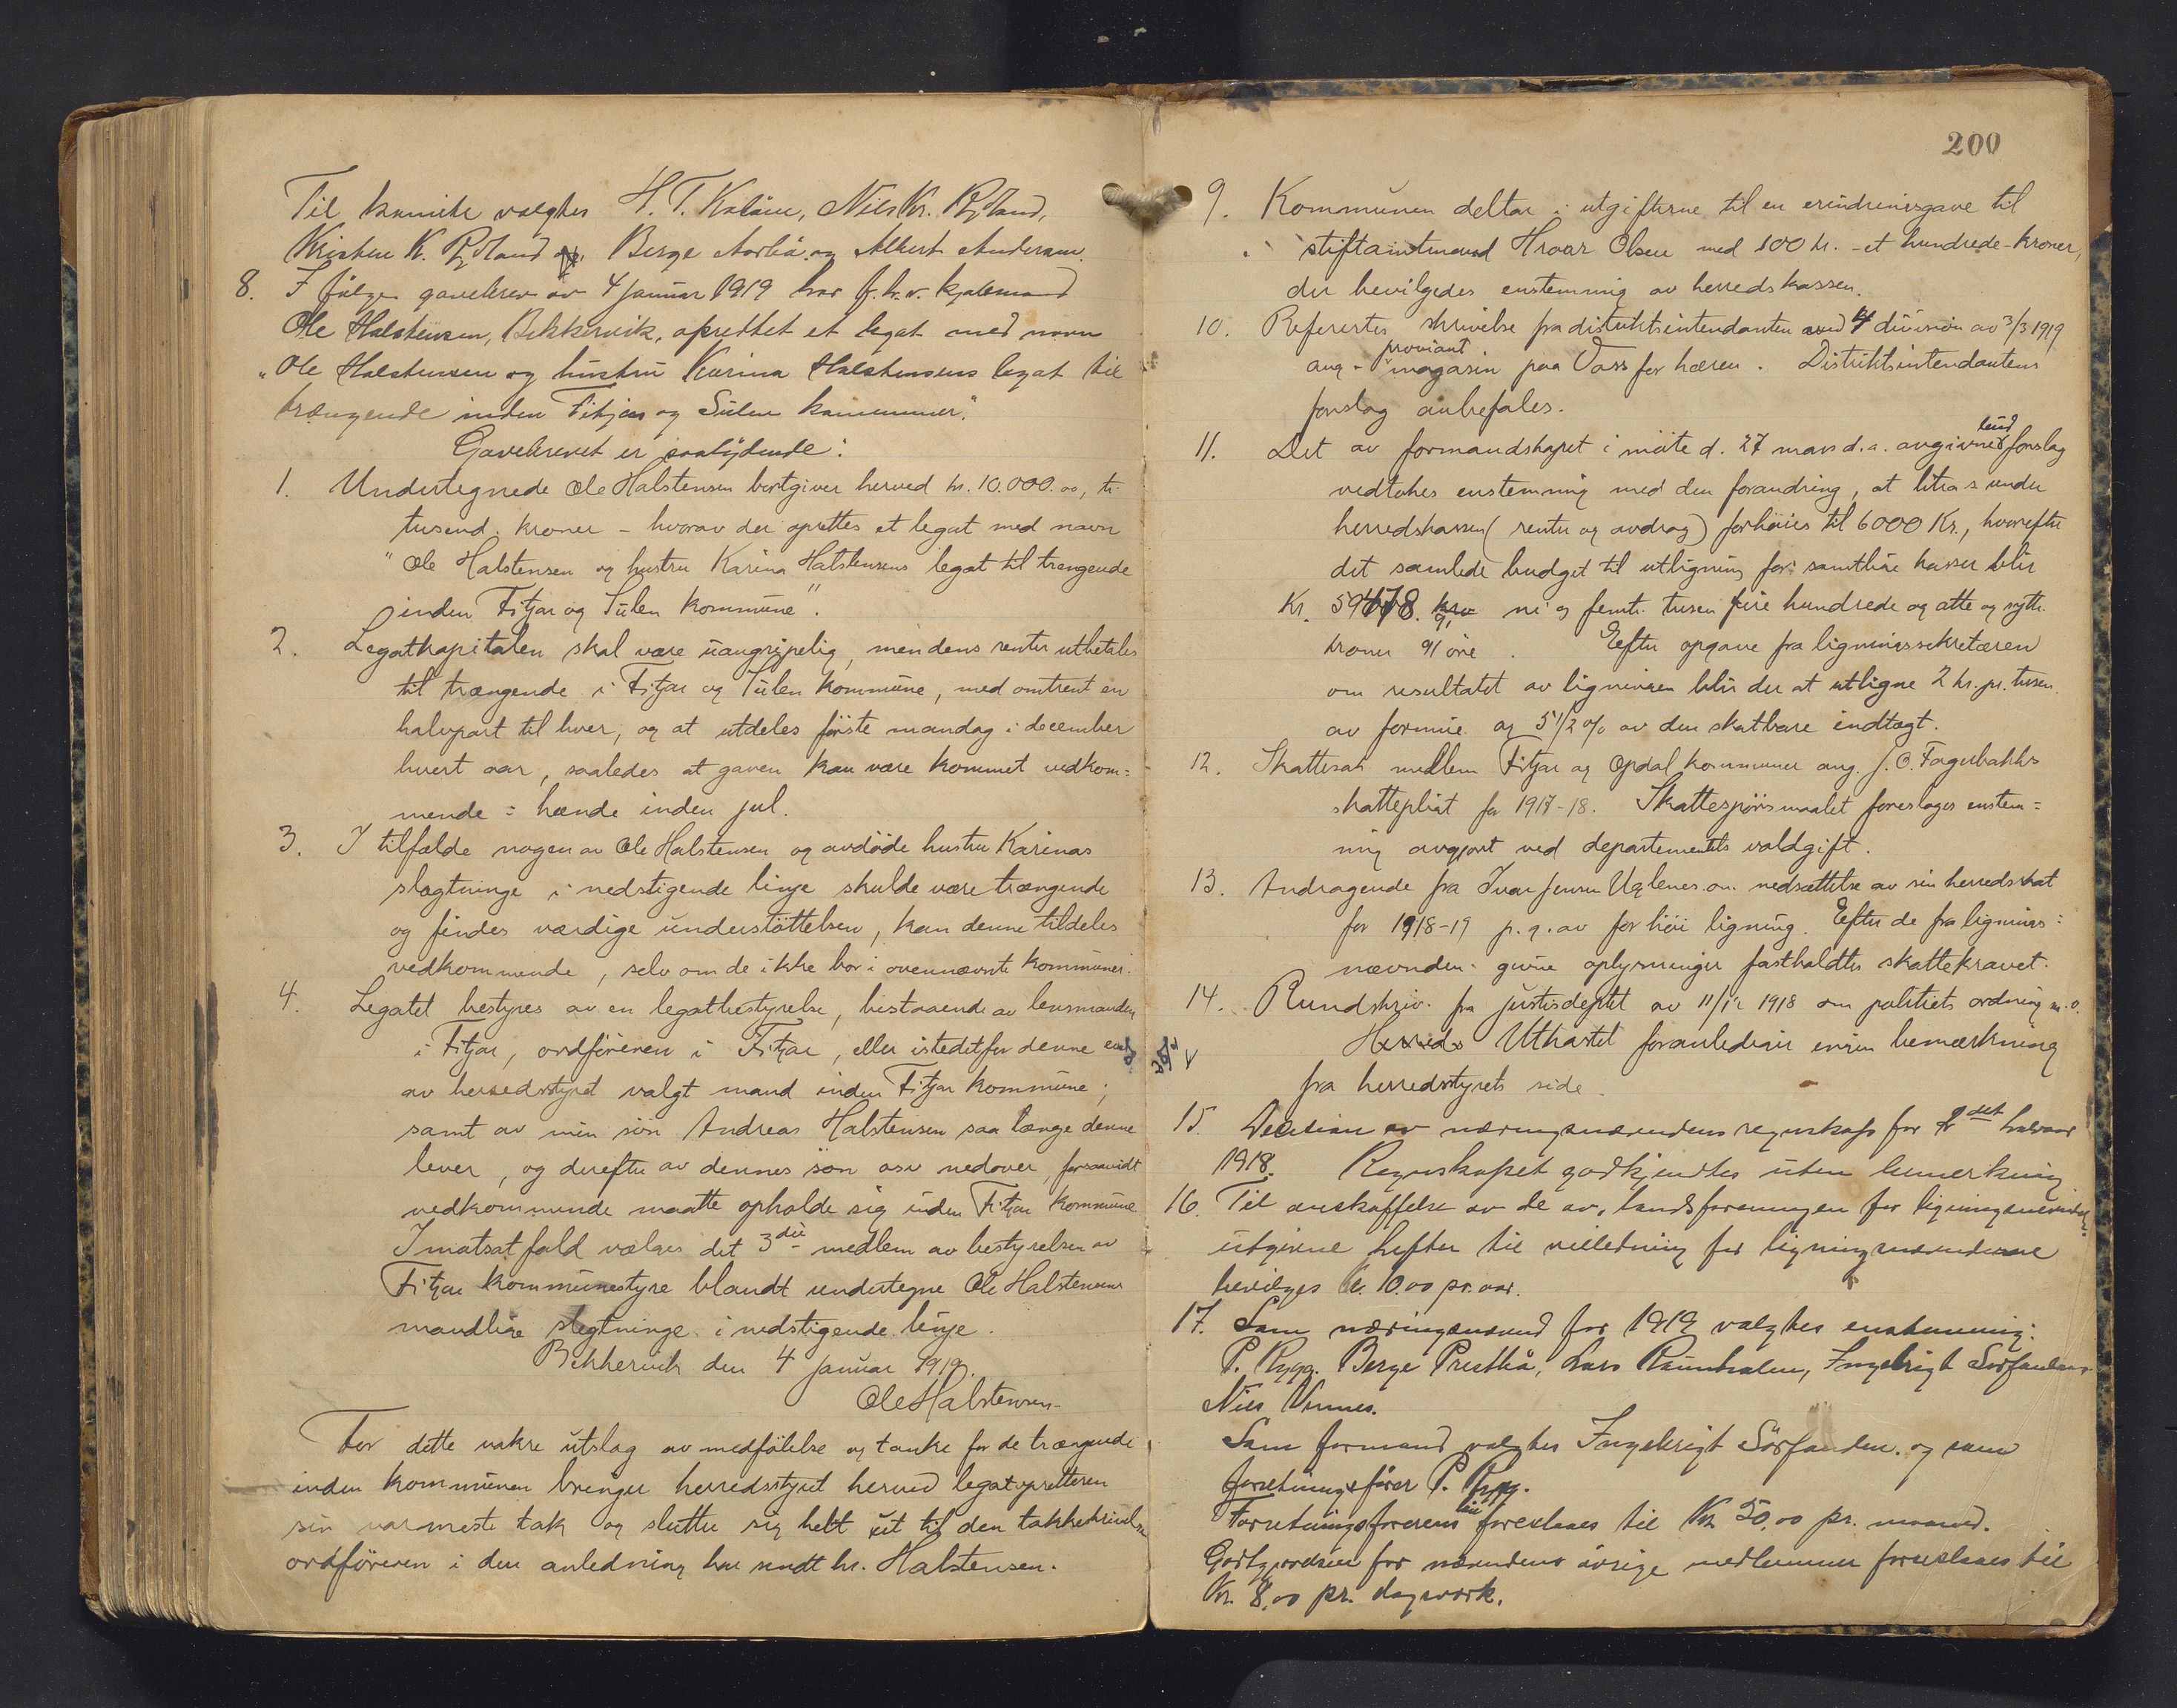 Til komite valgtes H. T. Kaløen, Nils Kr. Rydland,
Kristen K. Rydland Berge Aarbø og Albert Andersen.
8. I følge gavebrev av 4 januar 1919 har f. h. v. kjøbmand
Ole Halstensen, Bekkervik, oprettet et legat med navn
"Ole Halstensen og hustru Karina Halstensens legat til
trængende inden Fitjar og Sülen kommuner".
Gavebrevet er saalydende:
1. Undertegnede Ole Halstensen bortgiver herved kr. 10.000.00, ti
tusend kroner – hvorav der oprettes et legat med navn
"Ole Halstensen og hustru Karina Halstensens legat til trengende
inden Fitjar og Sülen kommune".
2. Legatkapitalen skal være uangripelig, men dens renter utbetales
til trængende i Fitjar og Sülen kommune, med omtrent en
halvpart til hver, og at utdeles første mandag i december
hvert aar, saaledes at gaven kan være kommet vedkom=
mende i hænde inden jul.
3. I tilfælde nogen av Ole Halstensen og avdøde hustru Karinas
slegtninge i nedstigende linje skulde være trængende
og findes værdige understøttelsen, kan denne tildeles
vedkommende, selv om de ikke bor i ovennævnte kommuner.
4. Legatet bestyres av en legatbestyrelse, bestaaende av lensmanden
i Fitjar, ordføreren i Fitjar, eller istedetfor denne en
av herredsstyret valgt mand inden Fitjar kommune;
samt av min søn Andreas Halstensen saa længe denne
lever, og derefter av dennes søn osv nedover, forsaavidt
vedkommende maatte opholde sig inden Fitjar kommune
I motsat fald vælges det 3die medlem av bestyrelsen av
Fitjar kommunestyre blandt undertegne Ole Halstensens
mandlige slegtninge i nedstigende linje.
Bekkervik den 4 januar 1919.
Ole Halstensen.
For dette vakre utslag av medfølelse og tanke for de trængende
inden kommunen bringer herredsstyret herved legatopretteren
sin varmeste tak og slutter sig helt ut til den takkeskrivelse
ordføreren i den anledning har sendt hr. Halstensen.
200
9. Kommunen deltar i utgifterne til en erindringsgave til
stiftamtmand Hroar Olsen med 100 kr. – et hundrede – kroner,
der bevilgedes enstemmig av herredskassen.
10. Refereertes skrivelse fra distriktsintendanten ved 4 division av 3/3 1919
proviant
ang – magasin paa Voss for hæren. Distriktsintendantens
forslag anbefales.
11. Det av formandskapet i møte d. 27 mars d. a. avgivne budforslag
vedtokes enstemmig med den forandring, at litra s under
herredskassen (renter og avdrag) forhøies til 6000 Kr., hvorefter
det samlede budget til utligning for samtlige kasser blir
Kr. 59478. ni og femti tusen fire hundrede og otte og sytti
kroner 91 øre. Efter opgave fra ligningssekretæren
om resultatet av ligningen blir der at utligne 2 kr. pr. tusen
av formue og 5 1/2 % av den skatbare indtægt.
12. Skattesak mellem Fitjar og Opdal kommuner ang. J. O. Fagerbakkes
skattepligt for 1917-18. Skattespørsmaalet foreslages enstem=
mig avgjort ved departementets voldgift.
13. Andragende fra Ivar Jensen Uglenes om nedsættelse av sin herredsskat
for 1918-19 p. g. av for høi ligning. Efter de fra lignings=
nævnden givne oplysninger fastholdtes skattekravet.
14. Rundskriv. fra justisdeptet av 11/12 1918 om politiets ordning m. v.
Utkastet foranlediger ingen bemærkning
fra herredsstyrets side.
15. Decision av næringsnævndens regnskap for 2det halvaar
1918. Regnskapet godkjendtes uten bemerkning
16. Til anskaffelse av de av "landsforeningen for ligningsnævnder"
utgivne hefter til veiledning for ligningsnævnderne
bevilges kr. 10.00 pr. aar.
17. Som næringsnævnd for 1919 valgtes enstemmig:
P. Rygg. Berge Prestbø, Lars Raunholm, Ingebrigt Sørfonden
Nils Vimnes.
Som formand valgtes Ingebrigt Sørfonden og som
forretningsfører P. Rygg.
Forretningsførerens løn foreslaaes til Kr. 50.00 pr. maaned.
Godtgjørelsen for nævndens øvrige medlemmer foreslaaes til
Kr. 8.00 pr. dagsverk.